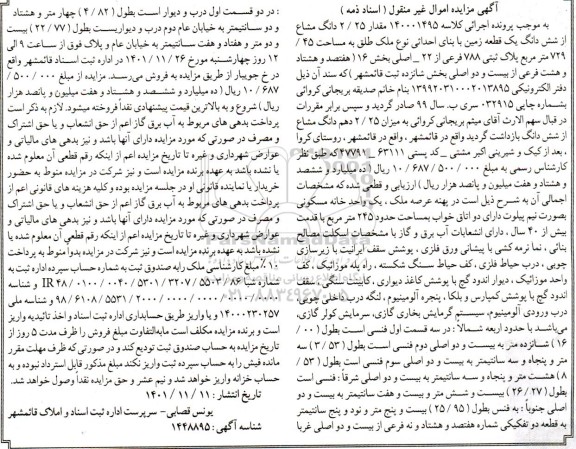 آگهی مزایده اموال غیر منقول ( اسناد ذمه )
به موجب پرونده اجرائی کلاسه ۱۴۰۰۰۱۴۹۵ مقدار ۲/۲۵ دانگ مشاع
از شش دانگ یک قطعه زمین با بنای احداثی نوع ملک طلق به مساحت ۴۵/
۷۲۹ متر مربع پلاک ثبتی ۷۸۸ فرعی از ۲۲ _ اصلی بخش ۱۶ ( هفتصد و هشتاد
و هشت فرعی از بیست و دو اصلی بخش شانزده ثبت قائمشهر ) که سند آن ذیل
دفتر الکترونیکی ۱۳۹۹۲۰۳۱۰۰۰۲۰۱۳۸۹۵ بنام خانم صدیقه بریجانی کروائی
بشماره چاپی ۰۳۲۹۱۵ سری ب. سال ۹۹ صادر گردید و سپس برابر مقررات
در قبال سهم الارث آقای میثم بریجانی کروائی به میزان ۲/۲۵ دهم دانگ مشاع
از شش دانگ بازداشت گردید واقع در قائمشهر ، واقع در قائمشهر ، روستای کروا
، بعد از کیک و شیرینی اکبر مشتی _ کد پستی ۶۳۱۱۱ _ ۴۷۷۹۱ که طبق نظر
کارشناس رسمی به مبلغ ۱۰/۶۸۷/۵۰۰/۰۰۰ ریال (ده میلیارد و ششصد
و هشتاد و هفت میلیون و پانصد هزار ریال ) ارزیابی و قطعی شده که مشخصات
اجمالی آن به شرح ذیل است در پهنه عرصه ملک ، یک واحد خانه مسکونی
بصورت نیم پیلوت دارای دو اتاق خواب بمساحت حدود ۲۴۵ متر مربع با قدمت
بیش از ۴۰ سال ، دارای انشعابات آب برق و گاز با مشخصات اسکلت مصالح
بنائی ، نما ازمه کشی با پیشانی ورق فلزی ، پوشش سقف ایرانیت با زیرسازی
چوبی ، درب حیاط فلزی ، کف حیاط سنگ شکسته ، راه پله موزائیک ، کف
واحد موزائیک ، دیوار اندود گچ با پوشش کاغذ دیواری ، کابینت سنگی ، سقف
اندود گچ با پوشش کمپارس و بلکا ، پنجره آلومینیوم ، لنگه درب داخلی چوبی
درب ورودی آلومینیوم، سیستم گرمایش بخاری گازی، سرمایش کولر گازی،
می‌باشد با حدود اربعه شمالاً : در سه قسمت اول فنسی است بطول ( ۰۰/
۱۶ ) شانزده متر به بیست و دو اصلی دوم فنسی است بطول ( ۵۳ / ۳ ) سه
متر و پنجاه و سه سانتیمتر به بیست و دو اصلی سوم فنسی است بطول ( ۵۳ /
۸ ) هشت متر و پنجاه و سه سانتیمتر به بیست و دو اصلی شرقا : فنسی است
بطول ( ۲۷ / ۲۶ ) بیست و شش متر و بیست و هفت سانتیمتر به بیست و دو
اصلی جنوباً : به فنس بطول ( ۹۵ / ۲۵ ) بیست و پنج متر و نود و پنج سانتیمتر
به قطعه دو تفکیکی شماره هفتصد و هشتاد و نه فرعی از بیست و دو اصلی غربا
: در دو قسمت اول درب و دیوار است بطول ( ۸۲ / ۴ ) چهار متر و هشتاد
و دو سانتیمتر به خیابان عام دوم درب و دیواریست بطول ( ۷۷ / ۲۲ ) بیست
و دو متر و هفتاد و هفت سانتیمتر به خیابان عام و پلاک فوق از ساعت ۹ الی
۱۲ روز چهارشنبه مورخ ۲۶ / ۱۱ / ۱۴۰۱ در اداره ثبت اسناد قائمشهر واقع
در خ جویبار از طریق مزایده به فروش می‌رسد. مزایده از مبلغ ۵۰۰/۰۰۰/
۱۰/۶۸۷ ریال ( ده میلیارد و ششصد و هشتاد و هفت میلیون و پانصد هزار
ریال ) شروع و به بالاترین قیمت پیشنهادی نقداً فروخته میشود. لازم به ذکر است
پرداخت بدهی های مربوط به آب برق گاز اعم از حق انشعاب و یا حق اشتراک
و مصرف در صورتی که مورد مزایده دارای آنها باشد و نیز بدهی های مالیاتی و
عوارض شهرداری و غیره تا تاریخ مزایده اعم از اینکه رقم قطعی آن معلوم شده
یا نشده باشد به عهده برنده مزایده است و نیز شرکت در مزایده منوط به حضور
خریدار یا نماینده قانونی او در جلسه مزایده بوده و کلیه هزینه های قانونی اعم از
پرداخت بدهی های مربوط به آب برق گاز اعم از حق انشعاب و یا حق اشتراک
و مصرف در صورتی که مورد مزایده دارای آنها باشد و نیز بدهی های مالیاتی و
عوارض شهرداری و غیره تا تاریخ مزایده اعم از اینکه رقم قطعی آن معلوم شده یا
نشده باشد به عهده برنده مزایده است و نیز شرکت در مزایده بدواً منوط به پرداخت
۱۰٪ مبلغ کارشناسی ملک رابه صندوق ثبت به شماره حساب سپرده اداره ثبت به
شماره شبا ۸۶ / ۵۵۰۳ / ۳۲۰۷ / ۵۳۰۱ / ۰۴۰ / ۰۱۰۰ / IR ۴۸ و شناسه
واریز ۰۰۰۰ / ۰۰۰۰ / ۲۰۰۰ / ۵۵۳۱ / ۶۱۰۸ / ۹۸ و شناسه ملی
۱۴۰۰۰۲۳۰۲۵۷ و یا واریز طریق حسابداری اداره ثبت اسناد واخذ تائیدیه واریز
است و برنده مزایده مکلف است مابه‌التفاوت مبلغ فروش را ظرف مدت ۵ روز از
تاریخ مزایده به حساب صندوق ثبت تودیع کند و در صورتی که ظرف مهلت مقرر
مانده فیش را به حساب سپرده ثبت واریز نکند مبلغ مذکور قابل استرداد نبوده و به
حساب خزانه واریز خواهد شد و نیم عشر و حق مزایده نقداً وصول خواهد شد.
تاریخ انتشار : ۱۱ / ۱۱ / ۱۴۰۱
یونس قصابی- سرپرست اداره ثبت اسناد و املاک قائمشهر
شناسه آگهی : ۱۴۴۸۸۹۵